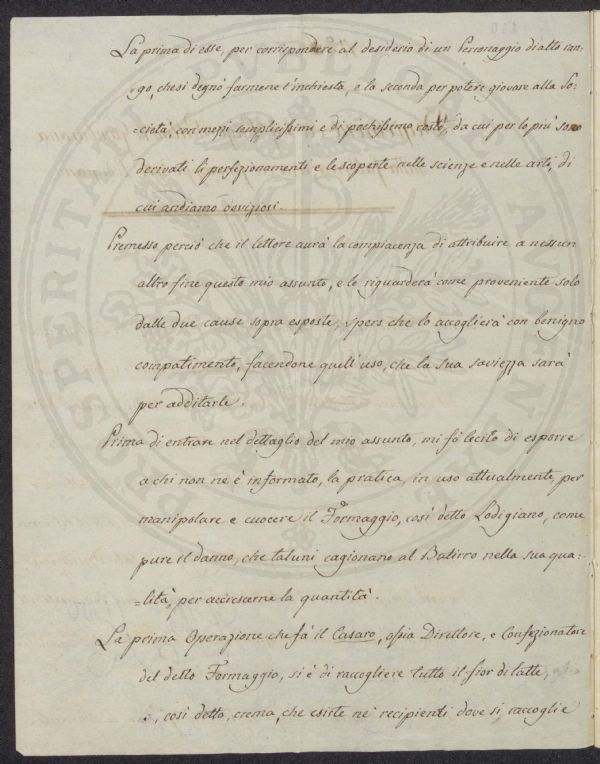 La prima di esse, per corrispondere al desiderio di un Personaggio di alto ran-
go, che si degnò farmene l'inchiesta, e la seconda per potere giovare alla So-
=cietà, con mezzi semplicissimi e di pochissimo costo, da cui per lo più sono
derivati li perfezionamenti e le scoperte nelle scienze e nelle arti, di
cui andiamo doviziosi.
Premesso perciò che il lettore aurà la compiacenza di attribuire a nessun
altro fine questo mio assunto, e lo riguarderà come proveniente solo
dalle due cause sopra esposte, spero che lo accoglierà con benigno
compatimento, facendone quell'uso, che la sua saviezza sarà
per additarle.
Prima di entrare nel dettaglio del mio assunto, mi fò lecito di esporre
a chi non ne è informato, la pratica, in uso attualmente, per
manipolare e cuocere il Formaggio, così detto Lodigiano, come
pure il danno, che taluni cagionano al Butirro nella sua qua-
=lità, per accrescerne la quantità.
La prima Operazione che fà il Casaro, ossia Direttore, e Confezionatore
del detto Formaggio, si è di raccogliere tutto il fior di latte,
così detto, crema, che esiste ne' recipienti dove si raccoglie